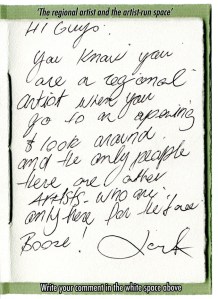 'The regional artist and the artist-run space'
Hi Guys.
You know you
are a regional
artist when you
go to an opening
& look around
and the only people
there are other
ARTISTS - who are
only there for the free
Booze.
Write your comment in the white space above